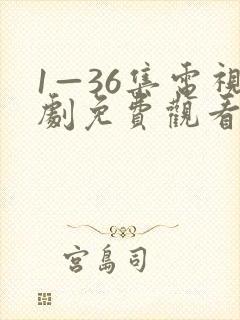 1—36集電視
劇免費觀看
宮島司